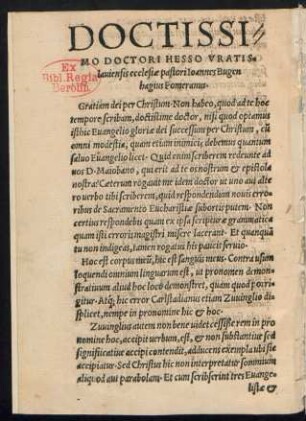 DOCTISSI-
MO DOCTORI HESSO VRATIS-
lauiensis ecclesiæ pastori Ioannes Bugen
hagius Pomeranus.
Ex
Bibl. Regia
Berolin.
Gratiam dei per Christum. Non habeo, quod ad te hoc
tempore scribam, doctissime doctor, nisi quod optamus
isthic Euangelio gloriæ dei successum per Christum, cū
omni modestia, quam etiam inimicis debemus quantum
saluo Euangelio licet. Quid enim scriberem redeunte ad
uos D. Maiobano, qui erit ad te os nostrum & epistola
nostra? Cæterum rogauit me idem doctor ut uno aut alte
ro uerbo tibi scriberem, quid respondendum nouis erro
ribus de Sacramento Eucharistiæ subortis putem. Non
certius respondebis quam ex ipsa scripturæ grammatica
quam isti erroris magistri misere lacerant. Et quanquā
tu non indigeas, tamen rogatus his paucis seruio.
Hoc est corpus meū, hic est sanguis meus. Contra usum
loquendi omnium linguarum est, ut pronomen demon-
stratiuum aliud hoc loco demonstret, quam quod porri
gitur. Atq; hic error Carlstadianus etiam Zuuinglio di
splicet, nempe in pronomine hic & hoc.
Zuuinglius autem non bene uidet cessisse rem in pro
nomine hoc, accipit uerbum, est, & non substantiue sed
significatiue accipi contendit, adducens exempla ubi sic
accipiatur. Sed Christus hic non interpretatur somnium
aliquod aut parabolam. Et cum scribserint tres Euange
listæ &